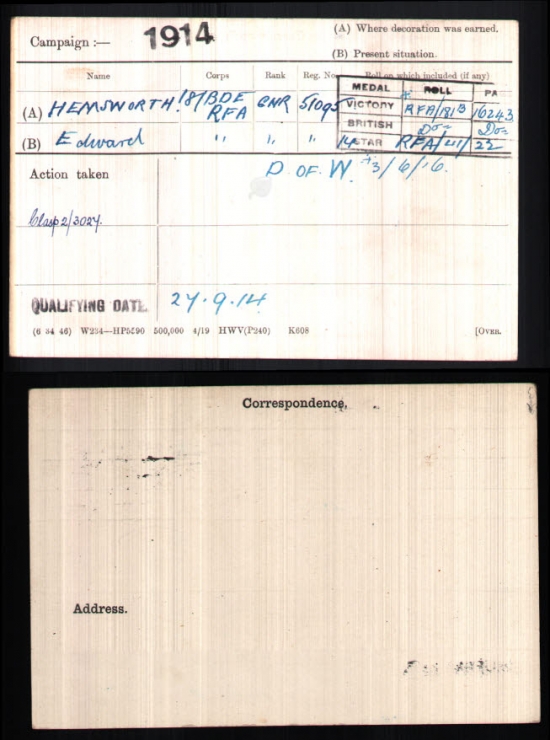 Campaign :— 1914
(A) Where decoration was earned.
(B) Present situation.
Name Corps Rank Reg. No. Roll on which included (if any)
MEDAL ROLL PA
(A) HEMSWORTH 181/BDE RFA GNR 51095 VICTORY RFA/181B 16243
BRITISH Do- Do-
(B) Edward " " " 14 STAR RFA/41/ 22
Action taken D. OF. W. 3/6/16.
Clasp 2/3027.
QUALIFYING DATE. 27.9.14
(6 34 46) W234—HP5590 500,000 4/19 HWV(P240) K608 [OVER.
Correspondence.
Address.